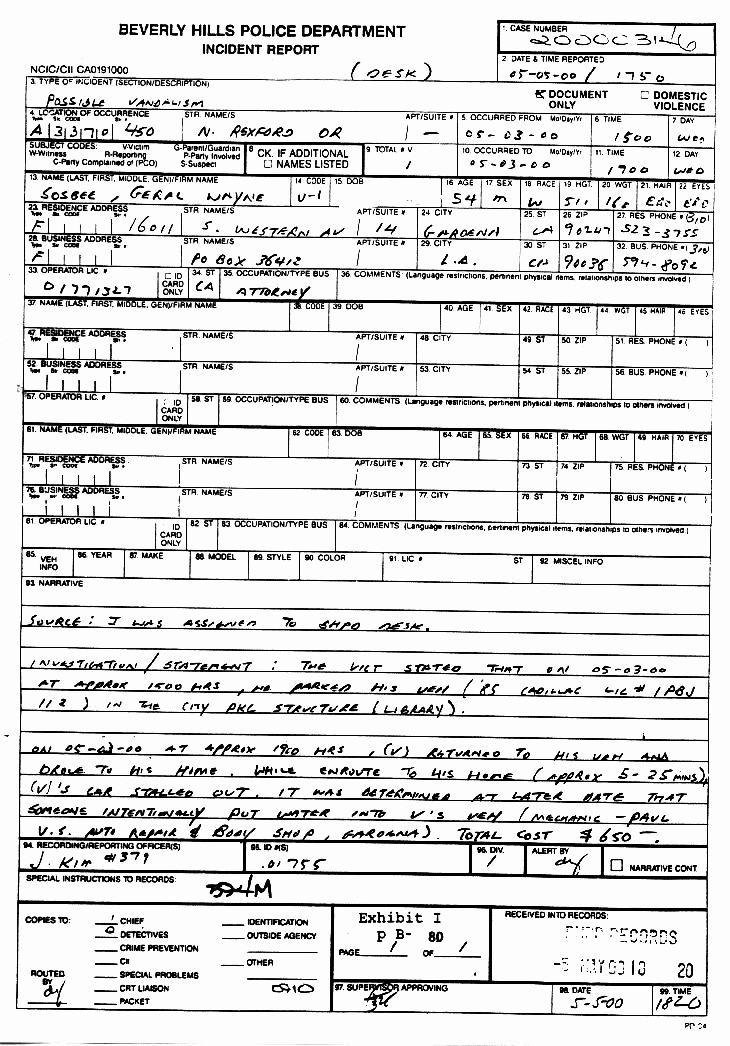 BEVERLY HILLS POLICE DEPARTMENT
INCIDENT REPORT
1. CASE NUMBER
20000 3146
2. DATE & TIME REPORTED
05-05-00 / 1750
NCIC/CII CA0191000
(DESK)
3. TYPE OF INCIDENT (SECTION/DESCRIPTION)
POSSIBLE VANDALISM
DOCUMENT ONLY
DOMESTIC VIOLENCE
4. LOCATION OF OCCURRENCE STR. NAME/S APT/SUITE # 5. OCCURRED FROM Mo/Day/Yr 6. TIME 7. DAY
A 3 3 7 0 450 N. REXFORD DR — 05-03-00 1500 WED
SUBJECT CODES: V-Victim G-Parent/Guardian
W-Witness R-Reporting P-Party Involved
C-Party Complained of (PCO) S-Suspect
8 CK. IF ADDITIONAL NAMES LISTED
9. TOTAL # V
1
10. OCCURRED TO Mo/Day/Yr 11. TIME 12 DAY
05-03-00 1900 WED
13. NAME (LAST, FIRST, MIDDLE, GEN)/FIRM NAME 14 CODE 15 DOB 16 AGE 17 SEX 18 RACE 19 HGT. 20 WGT 21. HAIR 22 EYES
SOSBEE, GERAL WAYNE V-1 54 M W 511
23. RESIDENCE ADDRESS STR. NAME/S APT/SUITE # 24 CITY 25. ST 26 ZIP 27. RES PHONE # (310)
F 16011 S. WESTERN AV 14 GARDENA CA 90247 523-3755
28. BUSINESS ADDRESS STR. NAME/S APT/SUITE # 29. CITY 30 ST 31 ZIP 32. BUS. PHONE # (310)
F PO BOX 36412 L.A. CA 90036 594-8092
33. OPERATOR LIC # ID CARD ONLY 34. ST 35. OCCUPATION/TYPE BUS 36. COMMENTS (Language restrictions, pertinent physical items, relationships to others involved)
D1771327 CA ATTORNEY
37. NAME (LAST, FIRST, MIDDLE, GEN)/FIRM NAME 38. CODE 39 DOB 40 AGE 41. SEX 42. RACE 43 HGT. 44 WGT 45 HAIR 46 EYES
47. RESIDENCE ADDRESS STR. NAME/S APT/SUITE # 48. CITY 49 ST 50. ZIP 51. RES. PHONE # ( )
52. BUSINESS ADDRESS STR. NAME/S APT/SUITE # 53. CITY 54 ST 55. ZIP 56. BUS. PHONE # ( )
57. OPERATOR LIC. # ID CARD ONLY 58. ST 59. OCCUPATION/TYPE BUS 60. COMMENTS (Language restrictions, pertinent physical items, relationships to others involved)
61. NAME (LAST, FIRST, MIDDLE, GEN)/FIRM NAME 62 CODE 63. DOB 64. AGE 65. SEX 66 RACE 67. HGT 68. WGT 69 HAIR 70 EYES
71. RESIDENCE ADDRESS STR. NAME/S APT/SUITE # 72. CITY 73 ST 74 ZIP 75. RES. PHONE # ( )
76. BUSINESS ADDRESS STR. NAME/S APT/SUITE # 77. CITY 78 ST 79 ZIP 80 BUS PHONE # ( )
81. OPERATOR LIC # ID CARD ONLY 82 ST 83 OCCUPATION/TYPE BUS 84. COMMENTS (Language restrictions, pertinent physical items, relationships to others involved)
85. VEH INFO 86. YEAR 87. MAKE 88. MODEL 89. STYLE 90 COLOR 91. LIC # ST 92 MISCEL INFO
93. NARRATIVE
SOURCE: I WAS ASSIGNED TO BHPD DESK.
INVESTIGATION/STATEMENT: THE VICT STATED THAT ON 05-03-00
AT APPROX 1500 HRS, HE PARKED HIS VEH ('85 CADILLAC LIC # 1PBJ
112) IN THE CITY PKG STRUCTURE (LIBRARY).
ON 05-03-00 AT APPROX 1900 HRS, (V) RETURNED TO HIS VEH AND
DROVE TO HIS HOME. WHILE ENROUTE TO HIS HOME (APPROX 5-25 MINS),
(V)'S CAR STALLED OUT. IT WAS DETERMINED AT LATER DATE THAT
SOMEONE INTENTIONALLY PUT WATER INTO V'S VEH (MECHANIC - PAUL
V.S. AUTO REPAIR & BODY SHOP, GARDENA). TOTAL COST $650—.
94. RECORDING/REPORTING OFFICER(S) 95. ID #(S) 96. DIV. ALERT BY
J. KIM #379 01755 1 NARRATIVE CONT.
SPECIAL INSTRUCTIONS TO RECORDS:
COPIES TO: CHIEF IDENTIFICATION
DETECTIVES OUTSIDE AGENCY
CRIME PREVENTION
CII OTHER
ROUTED BY SPECIAL PROBLEMS
CRT LIAISON
PACKET
Exhibit I
p B- 80
PAGE 1 OF 1
RECEIVED INTO RECORDS:
RECORDS
-5 MAY 00 18 20
97. SUPERVISOR APPROVING 98. DATE 99. TIME
5-5-00 1820